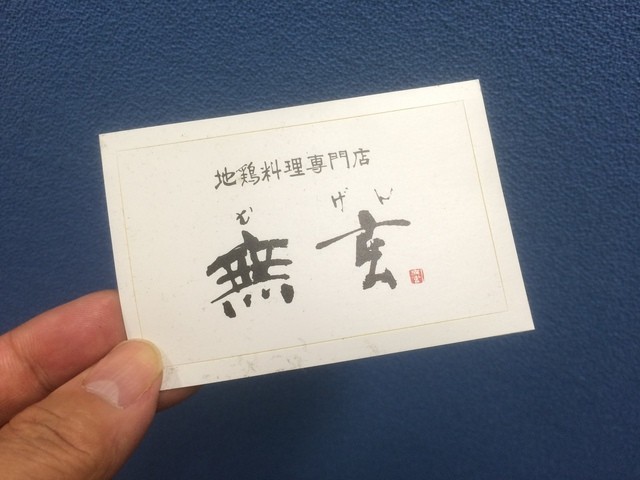 地鶏料理専門店
む げん
無玄